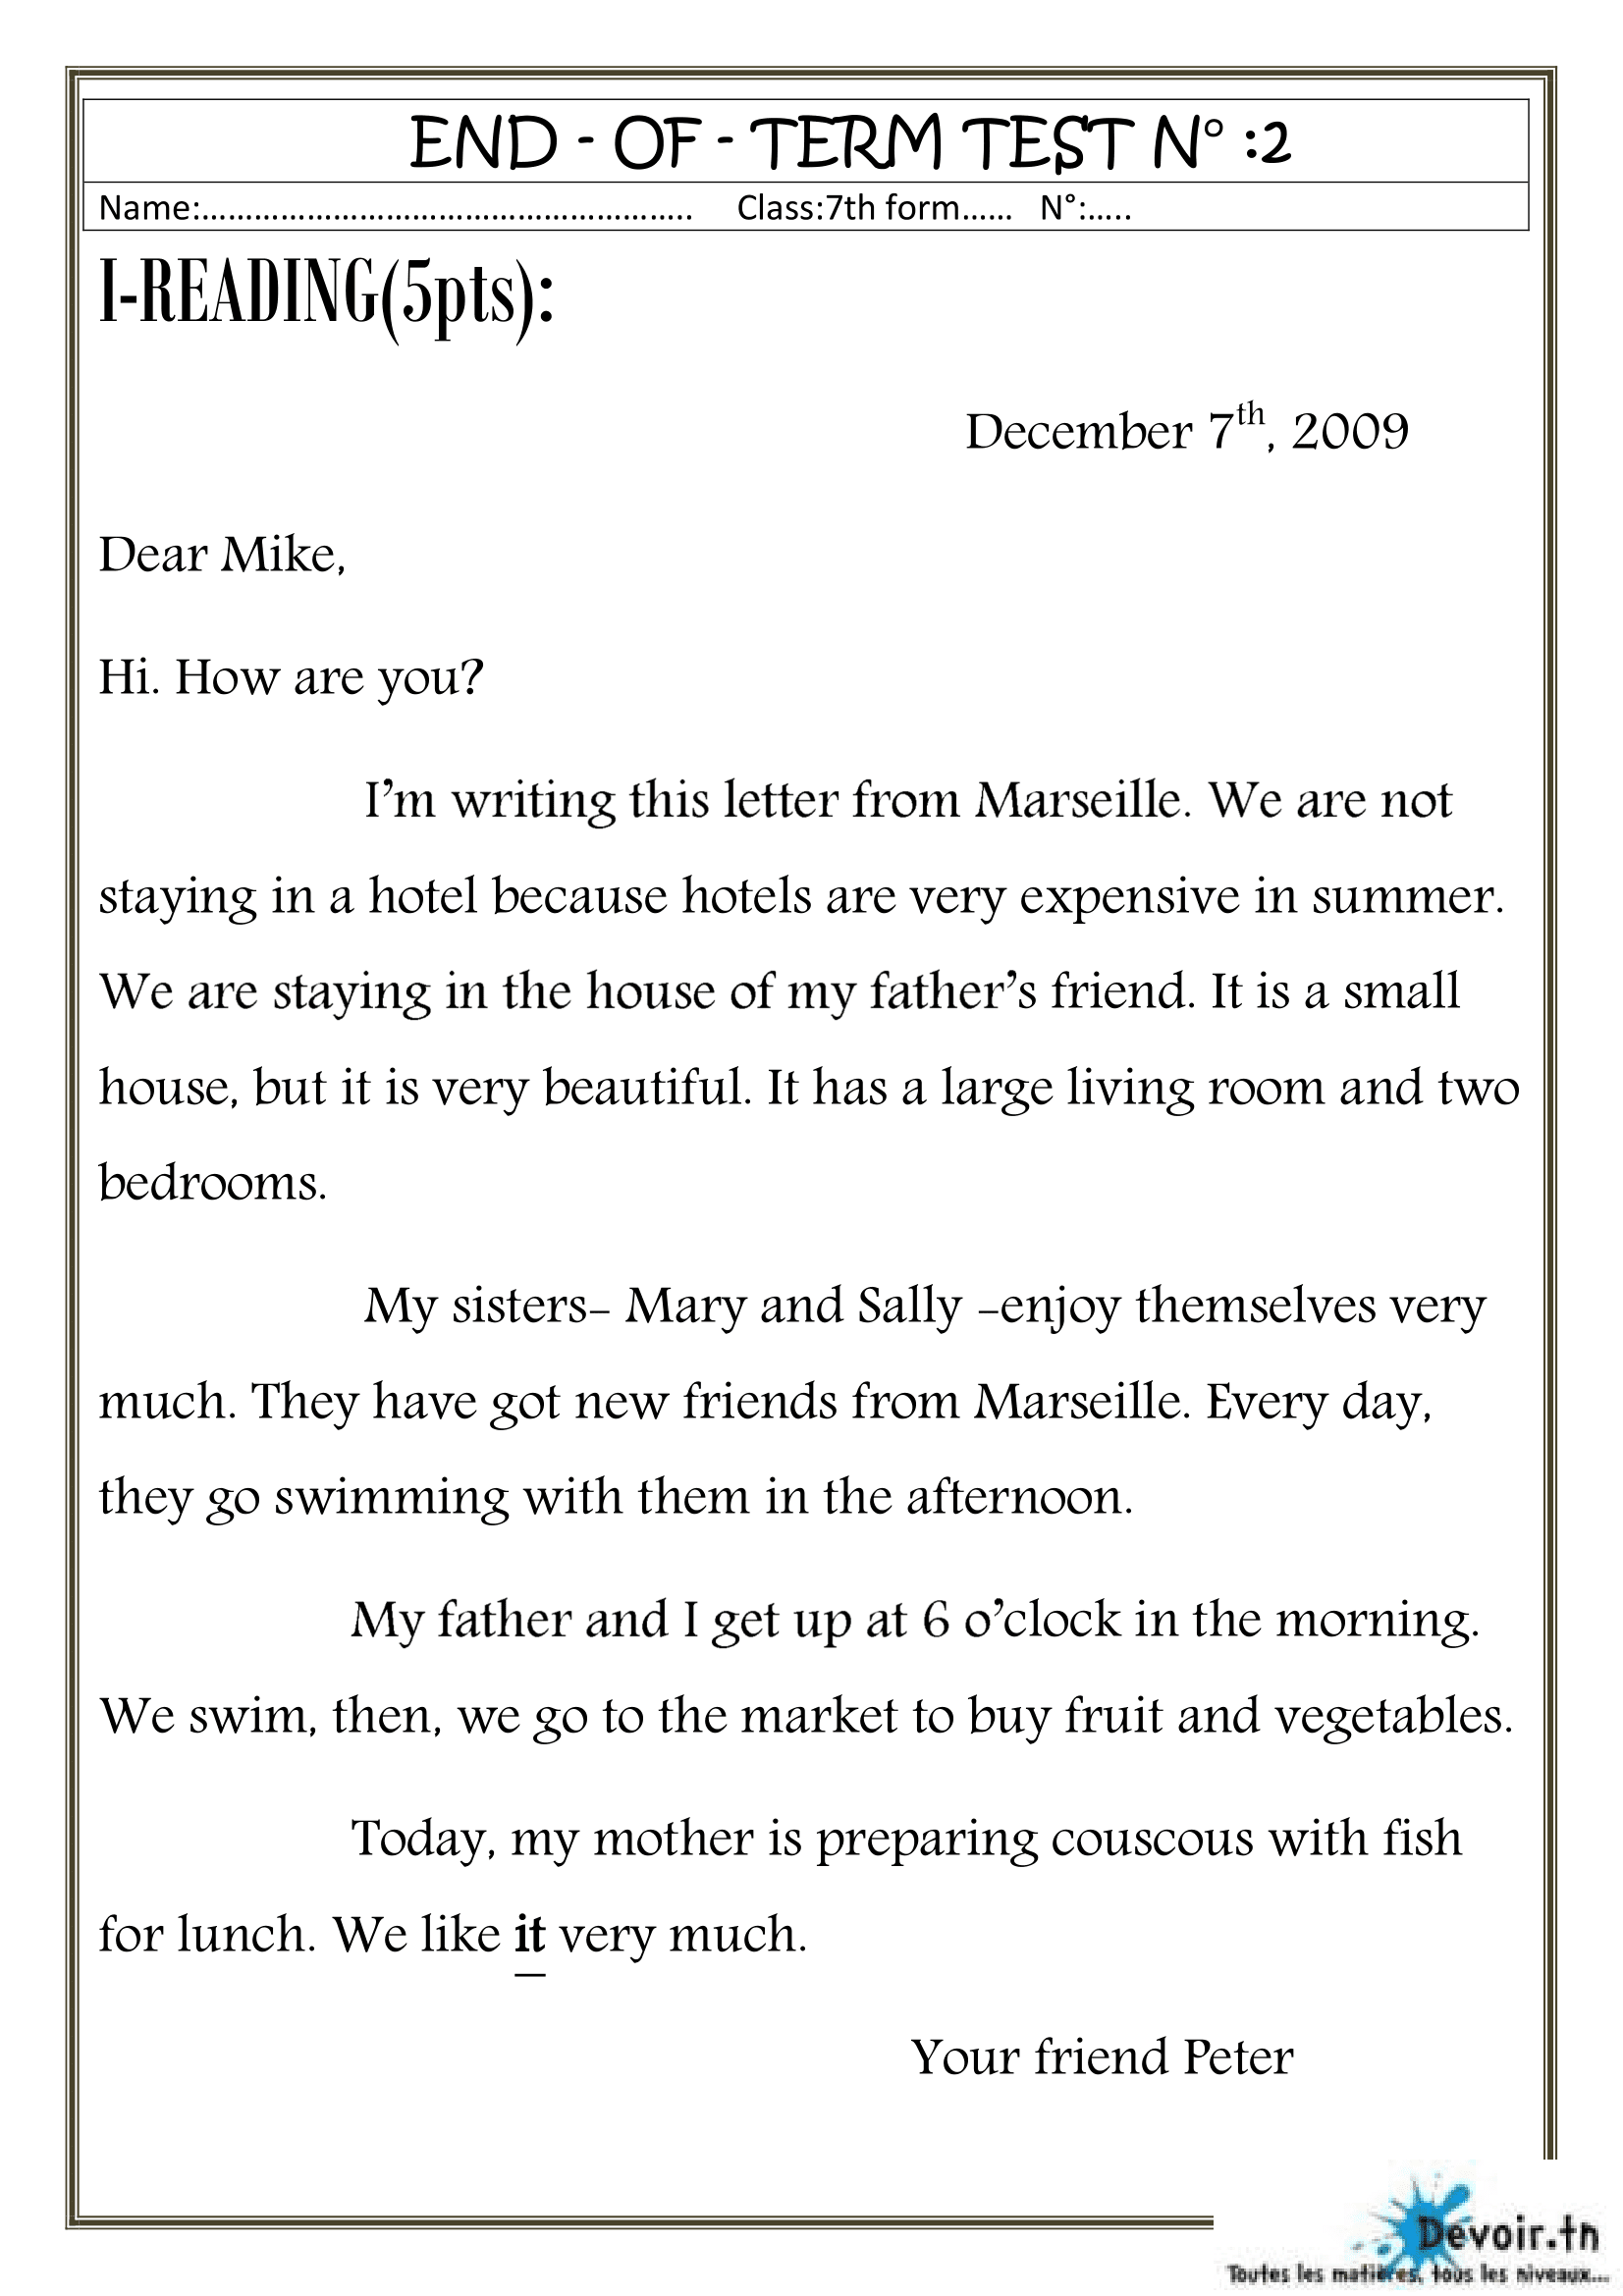 END - OF - TERM TEST N° :2
Name:………………………………………………. Class:7th form…… N°:…..
I-READING(5pts):
December 7th, 2009
Dear Mike,
Hi. How are you?
I’m writing this letter from Marseille. We are not
staying in a hotel because hotels are very expensive in summer.
We are staying in the house of my father’s friend. It is a small
house, but it is very beautiful. It has a large living room and two
bedrooms.
My sisters- Mary and Sally -enjoy themselves very
much. They have got new friends from Marseille. Every day,
they go swimming with them in the afternoon.
My father and I get up at 6 o’clock in the morning.
We swim, then, we go to the market to buy fruit and vegetables.
Today, my mother is preparing couscous with fish
for lunch. We like it very much.
Your friend Peter
Devoir.tn
Toutes les matières, tous les niveaux...